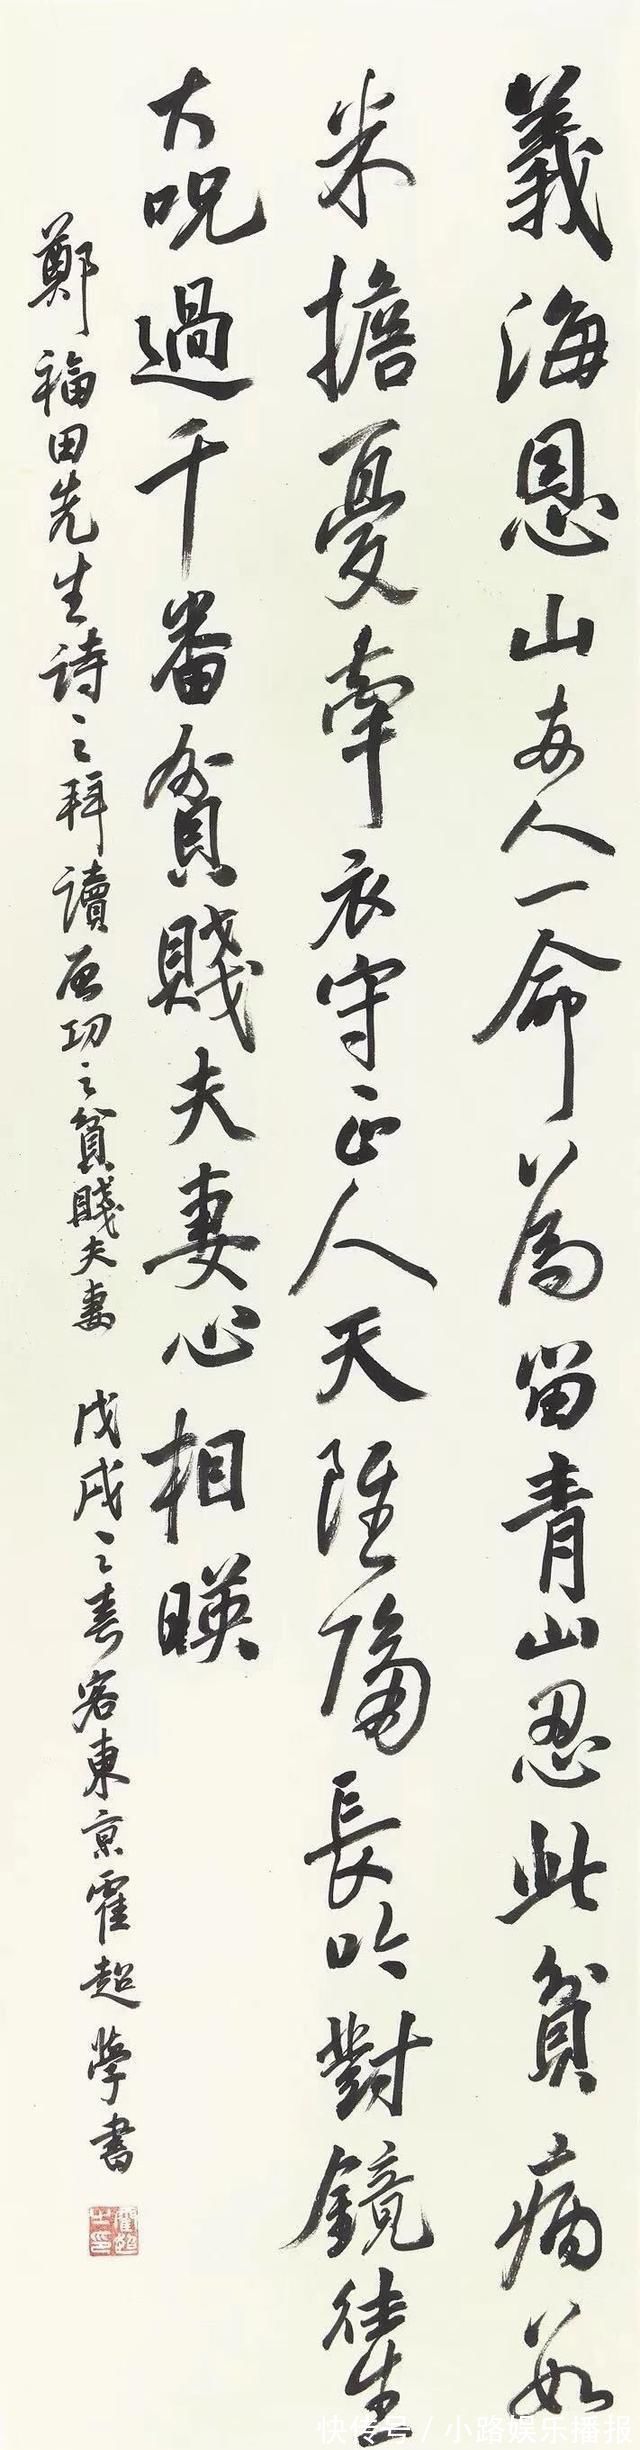 義海恩山兩人一命為留青山忍此貧病数
米擔憂牽衣守正人天雖隔長吟對鏡往生
大呪過千番貧賤夫妻心相暎
鄭福田先生诗之拜讀启功之貧賤夫妻 戊戌之春客東京霍超學書
霍超之印
快传号 / 小路娱乐播报